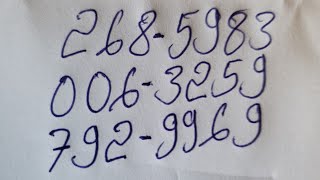 268-5983
006-3259
792-9969